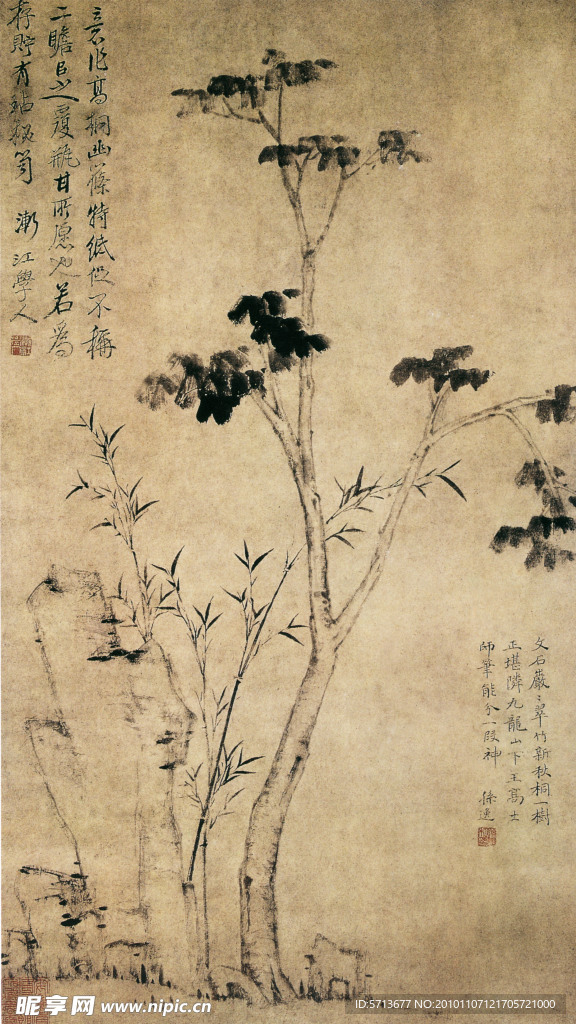 意作高桐幽篠特紙但不稱
二瞻臣之覆瓿甘所愿也若爲
存貯有玷秘笥
漸江學人
文石巖〻翠竹新秋桐一樹
正堪隣九龍山下王高士
師筆能分一段神
徐逸
昵享网 www.nipic.cn
ID:5713677 NO:20101107121705721000